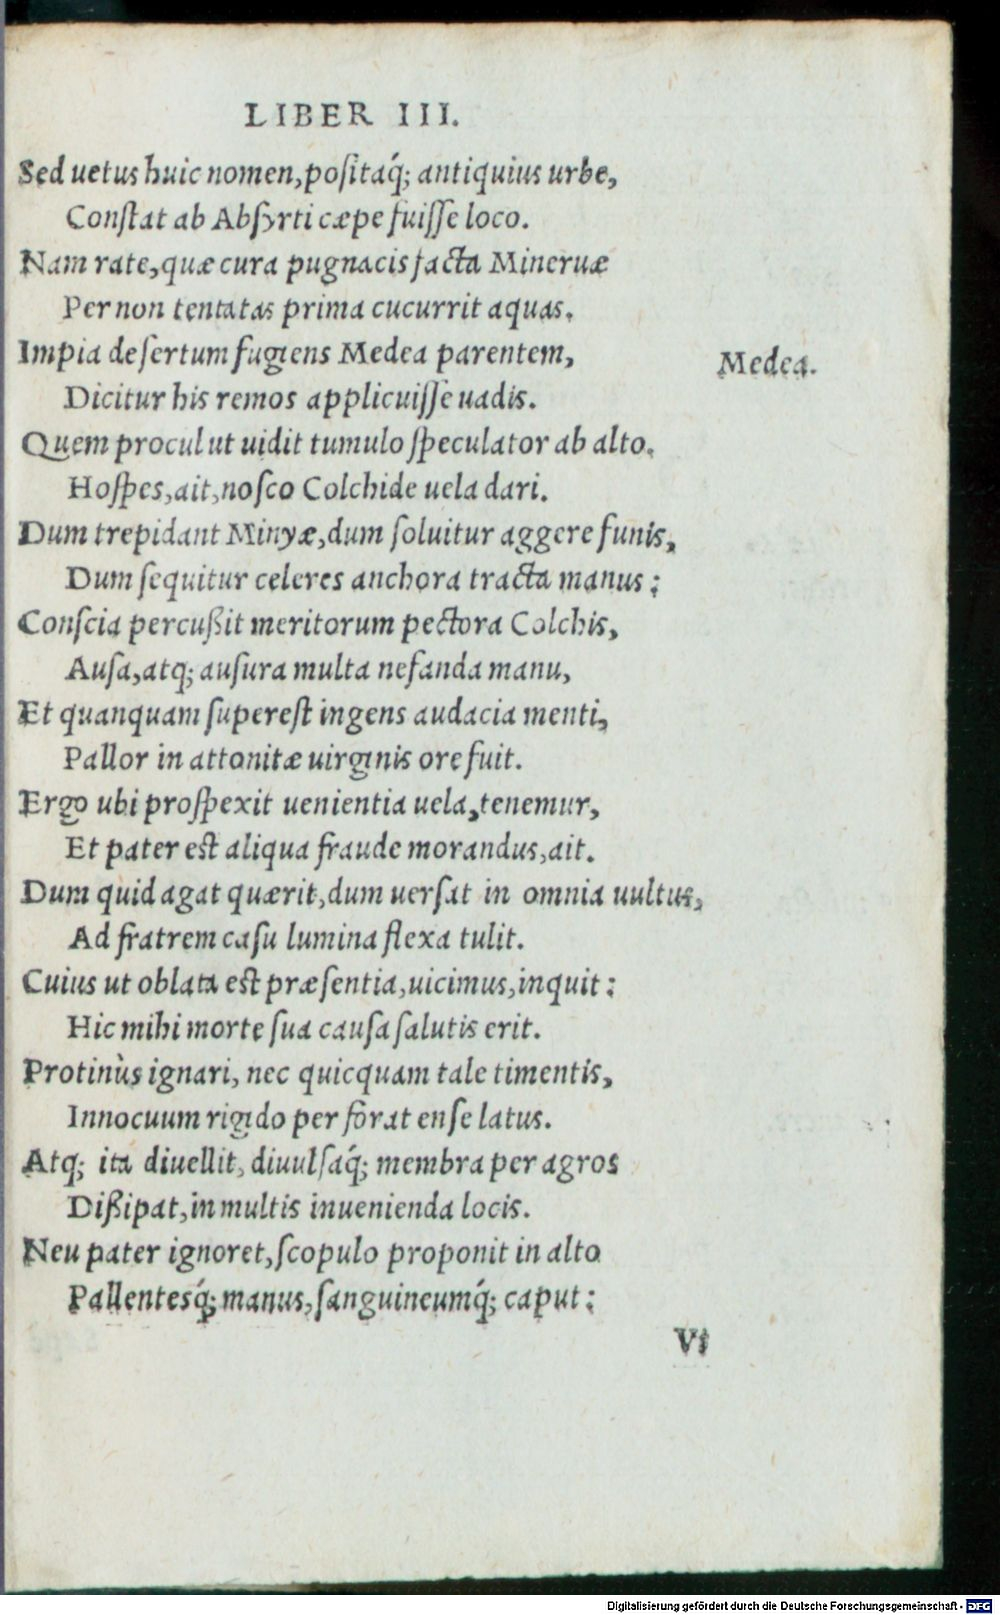 LIBER III.
Sed uetus huic nomen, positaq́; antiquius urbe,
Constat ab Absyrti cæpe fuisse loco.
Nam rate, quæ cura pugnacis facta Mineruæ
Per non tentatas prima cucurrit aquas.
Impia desertum fugiens Medea parentem,
Medea.
Dicitur his remos applicuisse uadis.
Quem procul ut uidit tumulo speculator ab alto.
Hospes, ait, nosco Colchide uela dari.
Dum trepidant Minyæ, dum soluitur aggere funis,
Dum sequitur celeres anchora tracta manus:
Conscia percußit meritorum pectora Colchis,
Ausa, atq; ausura multa nefanda manu,
Et quanquam superest ingens audacia menti,
Pallor in attonitæ uirginis ore fuit.
Ergo ubi prospexit uenientia uela, tenemur,
Et pater est aliqua fraude morandus, ait.
Dum quid agat quærit, dum uersat in omnia uultus,
Ad fratrem casu lumina flexa tulit.
Cuius ut oblata est præsentia, uicimus, inquit:
Hic mihi morte sua causa salutis erit.
Protinùs ignari, nec quicquam tale timentis,
Innocuum rigido perforat ense latus.
Atq; ita diuellit, diuulsaq́; membra per agros
Dißipat, in multis inuenienda locis.
Neu pater ignoret, scopulo proponit in alto
Pallentesq́; manus, sanguineumq́; caput:
Vt
Digitalisierung gefördert durch die Deutsche Forschungsgemeinschaft - DFG